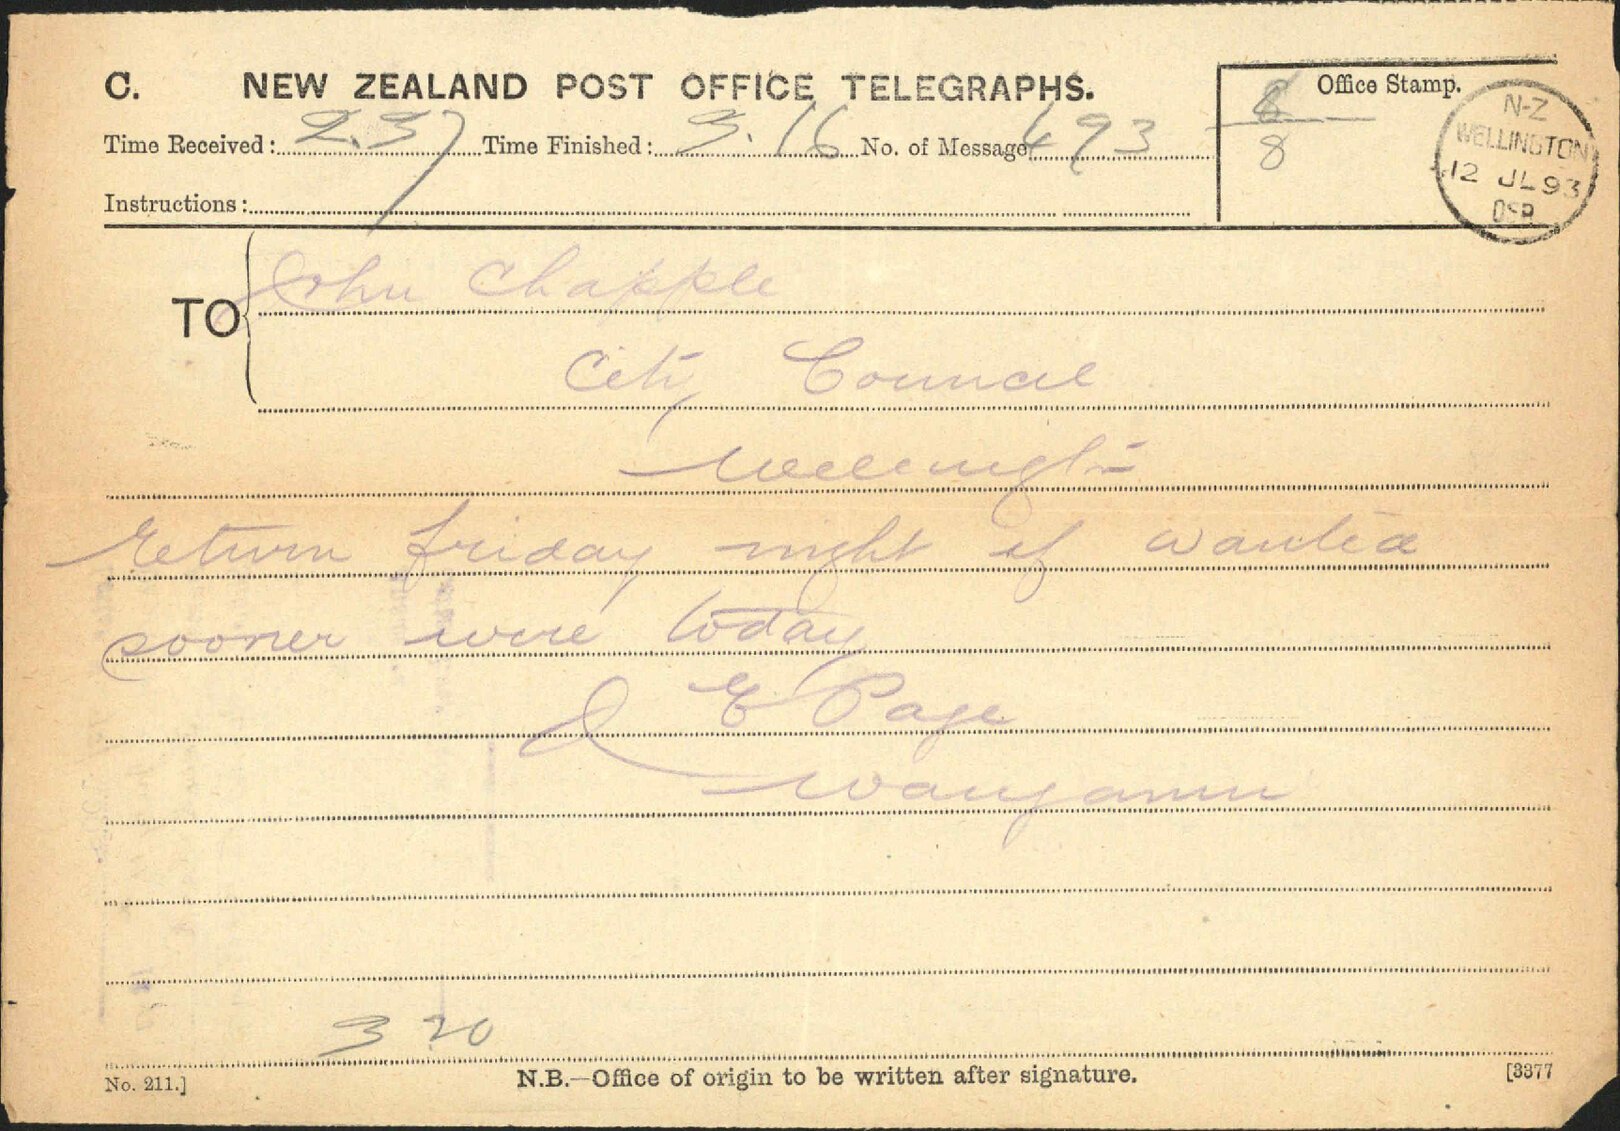 C. NEW ZEALAND POST OFFICE TELEGRAPHS.
Office Stamp.
8
8
N-Z
WELLINGTON
12 JL 93
Time Received: 2.37 Time Finished: 3.16 No. of Message 493
Instructions:
TO John Chapple
City Council
Wellington
Return friday night if wanted
sooner wire today
E Page
Wanganui
3 20
No. 211.]
N.B.—Office of origin to be written after signature.
[3377